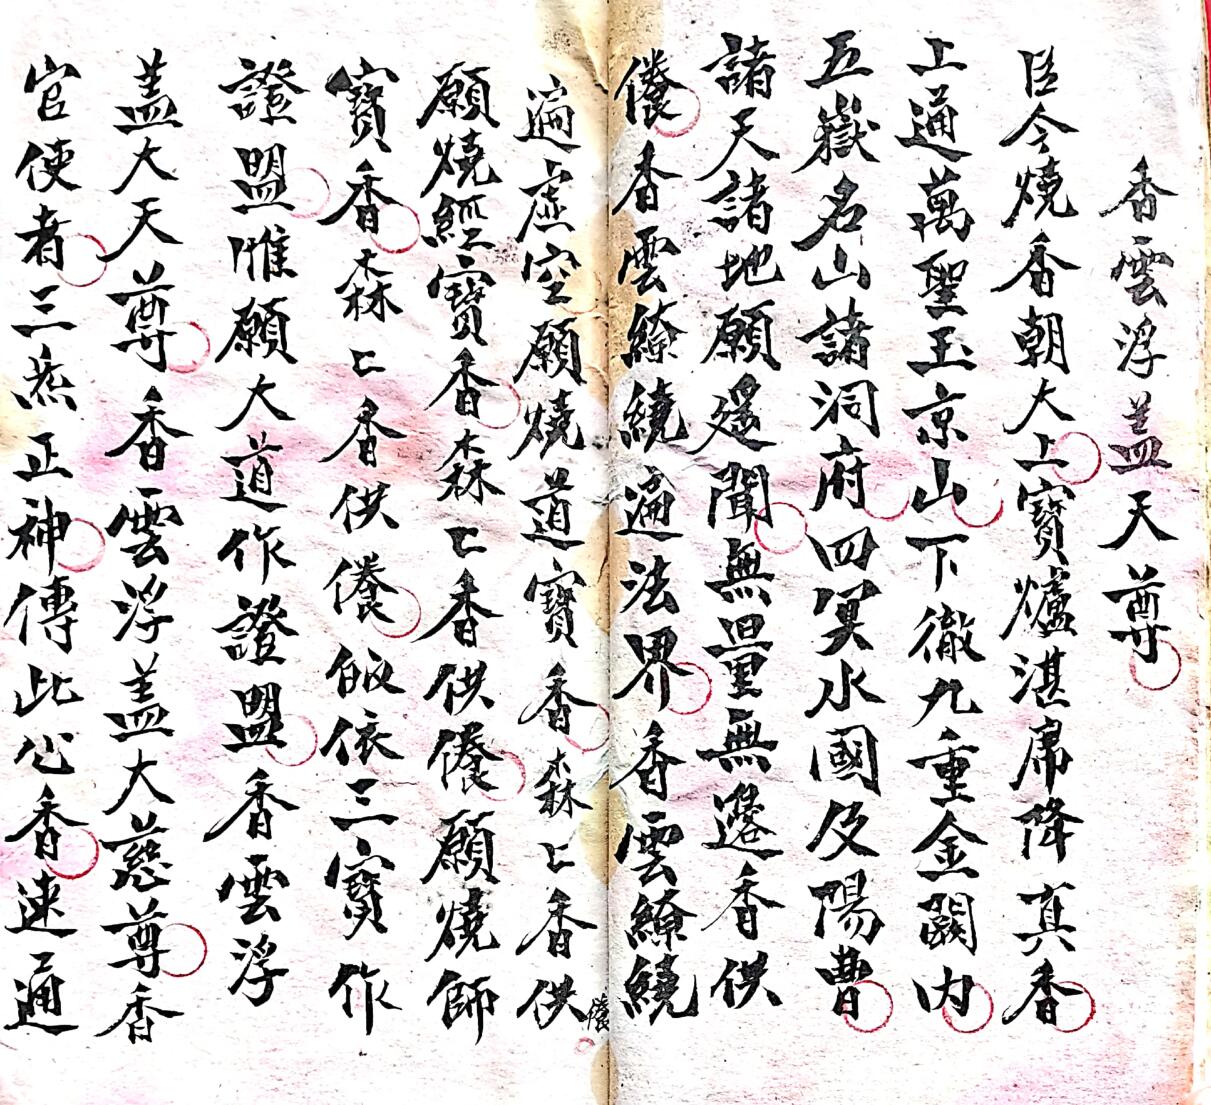 香雲浮盖天尊
臣今燒香朝大上寶爐湛席降真香
上通萬聖玉京山下徹九重金闕内
五嶽名山諸洞府四冥水國及陽曹
諸天諸地願遥聞無量無邊香供
儀香雲繚繞遍法界香雲繚繞
遍虛空願燒道寶香森〻香供儀
願燒經寶香森〻香供儀願燒師
寶香森〻香供儀皈依三寶作
證盟惟願大道作證盟香雲浮
盖大天尊香雲浮盖大慈尊香
官使者三炁正神傳此心香速通